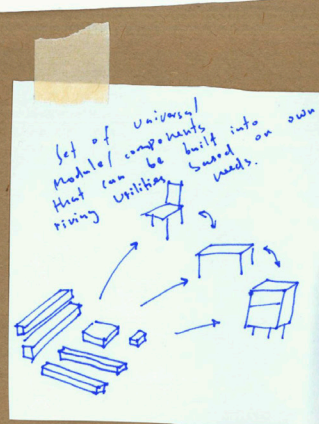 Set of universal
modular components
that can be built into
living utilities based on own
needs.